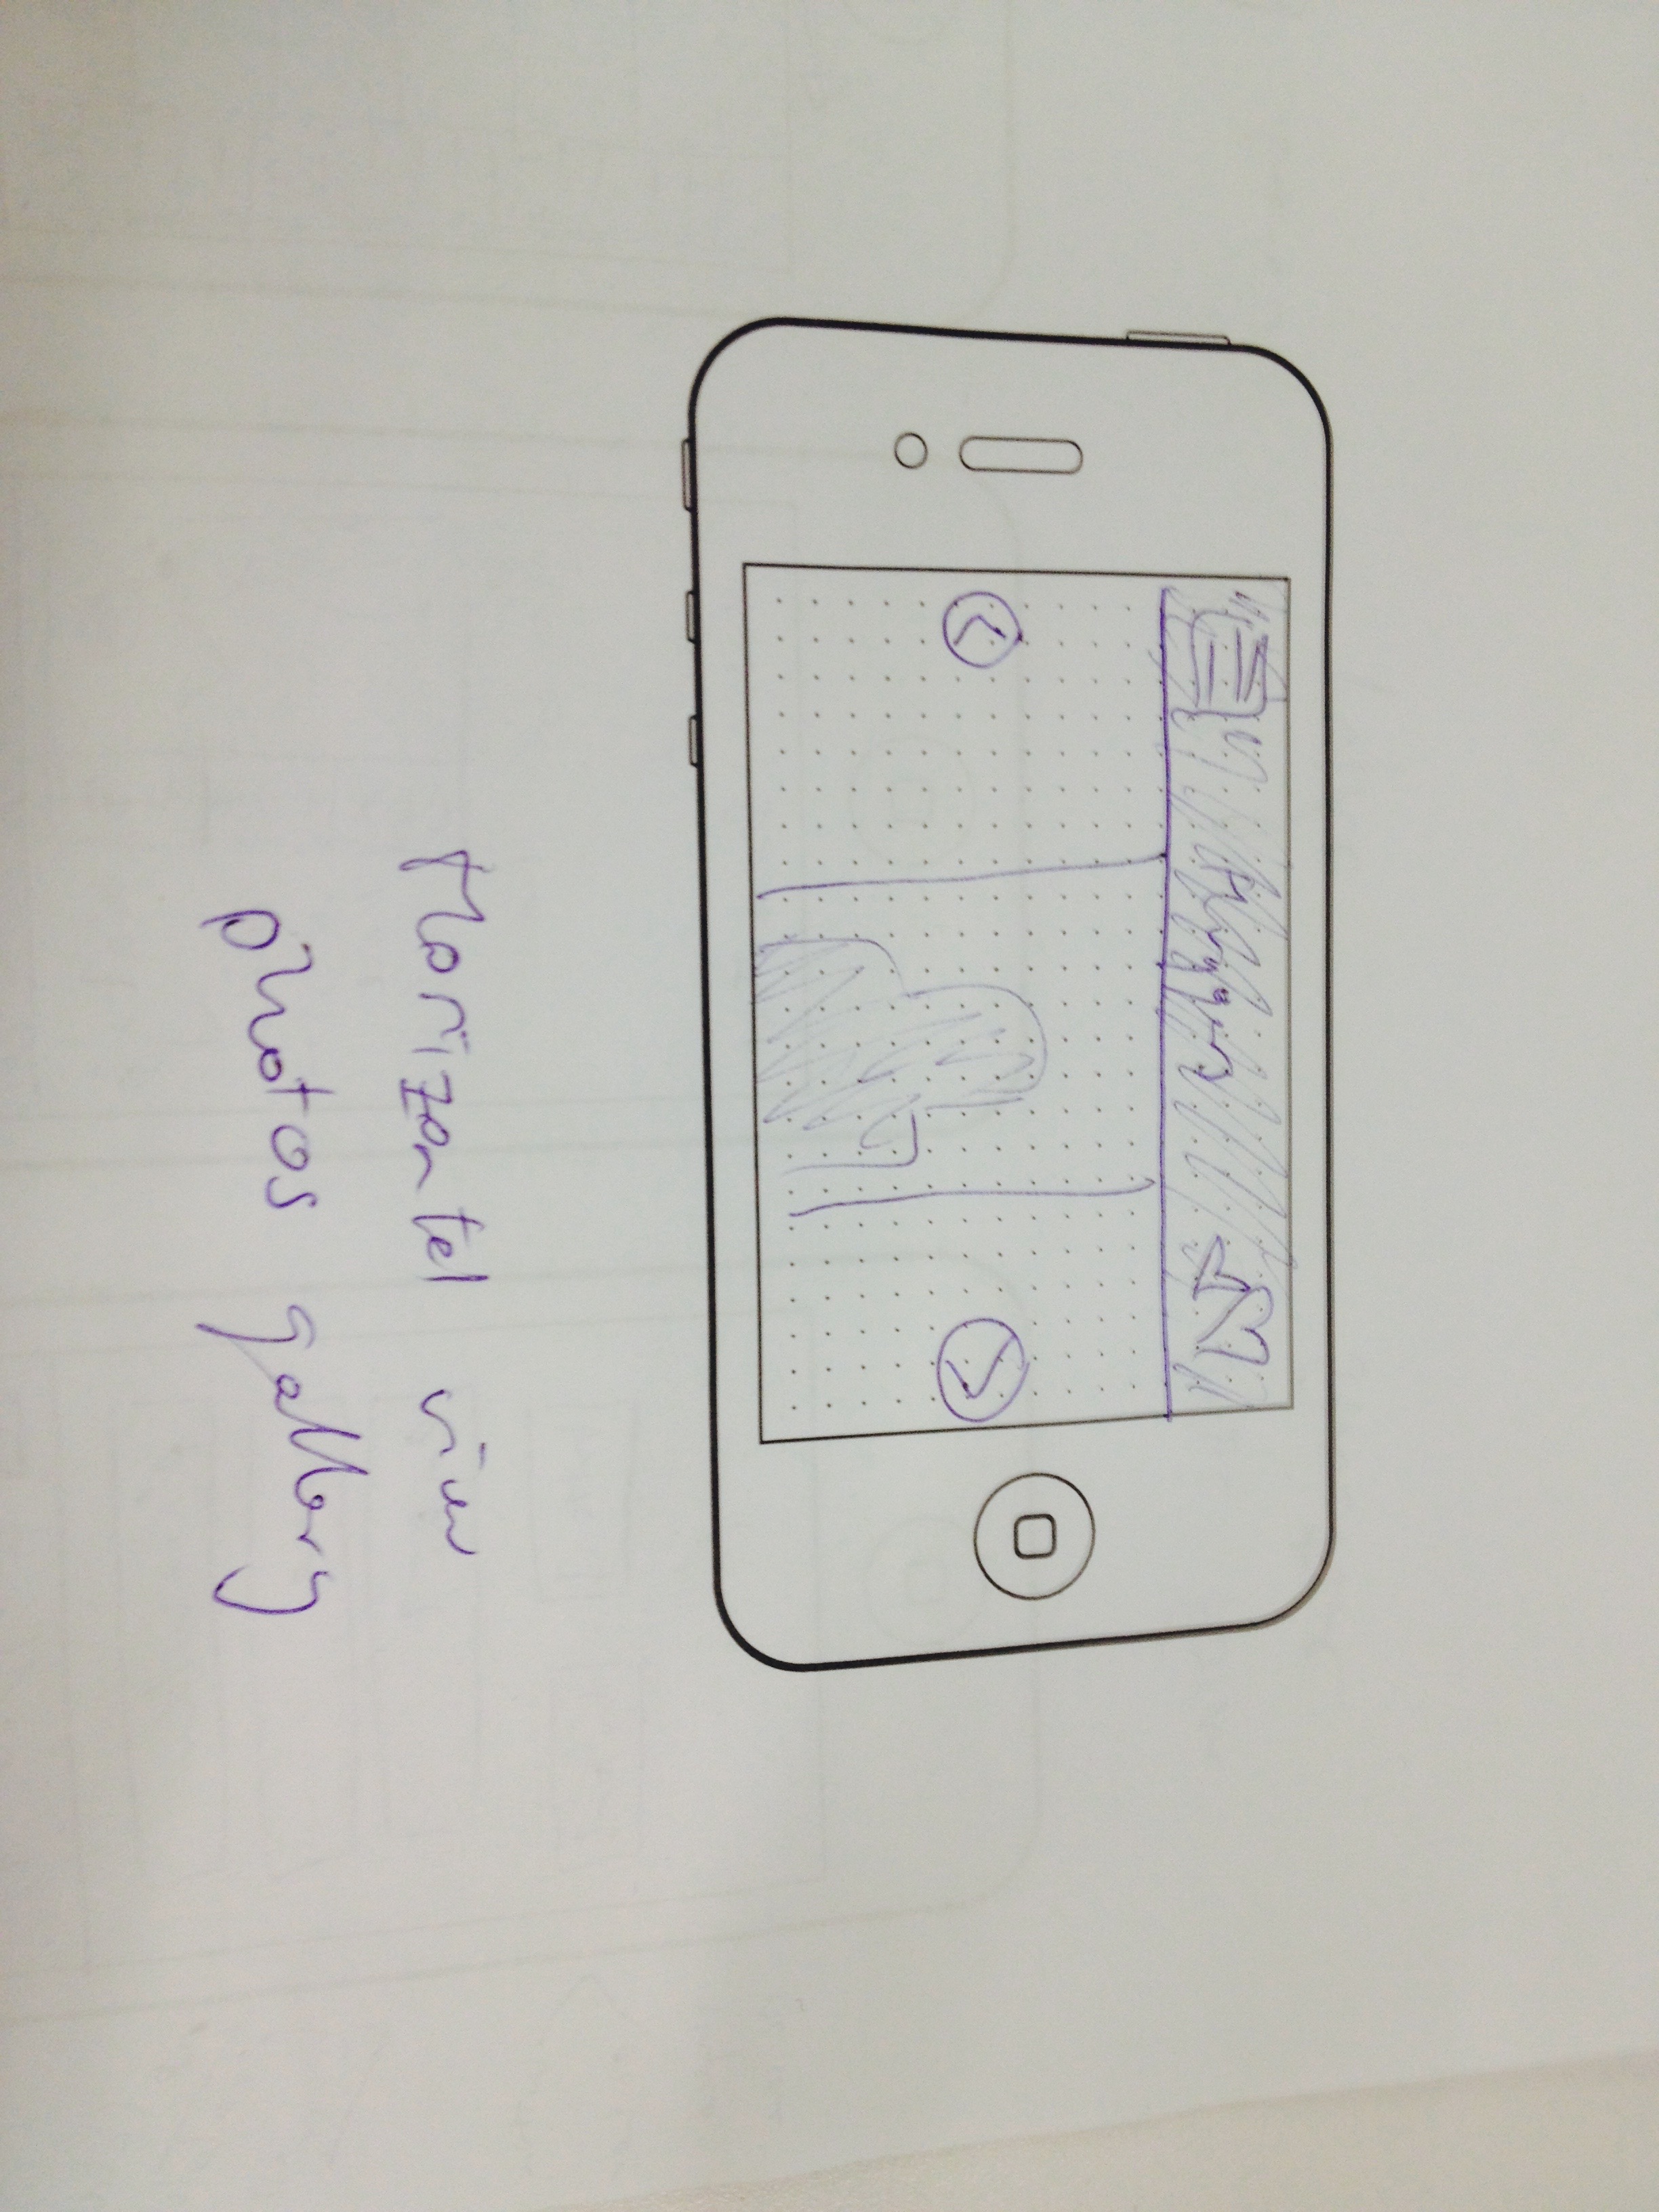 Horizontel view
photos gallery